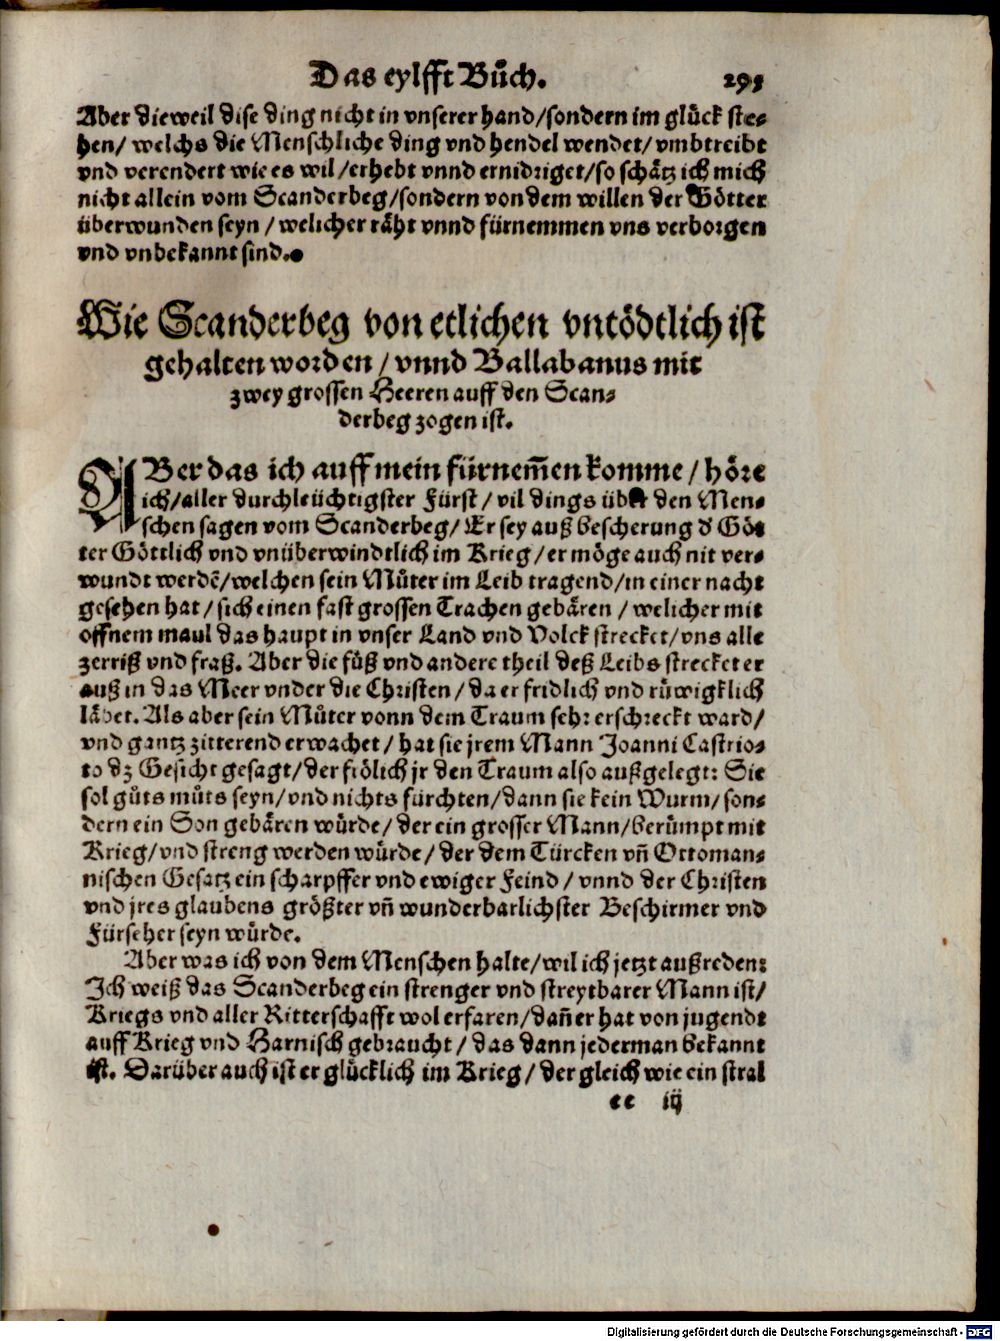 Das eylfft Bůch. 295
Aber dieweil dise ding nicht in vnserer hand/sondern im glück ste-
hen/ welchs die Menschliche ding vnd hendel wendet/ vmbtreibt
vnd verendert wie es wil/erhebt vnnd ernidriget/so schätz ich mich
nicht allein vom Scanderbeg/sondern von dem willen der Götter
überwunden seyn / welicher räht vnnd fürnemmen vns verborgen
vnd vnbekannt sind.
Wie Scanderbeg von etlichen vntödtlich ist
gehalten worden / vnnd Ballabanus mit
zwey grossen Heeren auff den Scan-
derbeg zogen ist.
ABer das ich auff mein fürnem̃en komme / höre
ich/aller durchleüchtigster Fürst / vil dings über den Men-
schen sagen vom Scanderbeg/ Er sey auß bescherung d' Göt
ter Göttlich vnd vnüberwindtlich im Krieg / er möge auch nit ver-
wundt werdẽ/welchen sein Můter im Leib tragend/in einer nacht
gesehen hat / sich einen fast grossen Trachen gebären / welicher mit
offnem maul das haupt in vnser Land vnd Volck strecket/vns alle
zerriß vnd fraß. Aber die füß vnd andere theil deß Leibs strecket er
auß in das Meer vnder die Christen / da er fridlich vnd rüwigklich
läbet. Als aber sein Můter vonn dem Traum sehr erschreckt ward/
vnd gantz zitterend erwachet / hat sie jrem Mann Joanni Castrio-
to dz Gesicht gesagt/der frölich jr den Traum also außgelegt: Sie
sol gůts můts seyn/vnd nichts fürchten/dann sie kein Wurm/ son-
dern ein Son gebären würde/ der ein grosser Mann/berümpt mit
Krieg/vnd streng werden würde / der dem Türcken vñ Ottoman-
nischen Gesatz ein scharpffer vnd ewiger Feind / vnnd der Christen
vnd jres glaubens größter vñ wunderbarlichster Beschirmer vnd
Fürseher seyn würde.
Aber was ich von dem Menschen halte/wil ich jetzt außreden:
Ich weiß das Scanderbeg ein strenger vnd streytbarer Mann ist/
Kriegs vnd aller Ritterschafft wol erfaren/dañ er hat von jugendt
auff Krieg vnd Harnisch gebraucht / das dann jederman bekannt
ist. Darüber auch ist er glücklich im Krieg / der gleich wie ein stral
ee iij
Digitalisierung gefördert durch die Deutsche Forschungsgemeinschaft - DFG